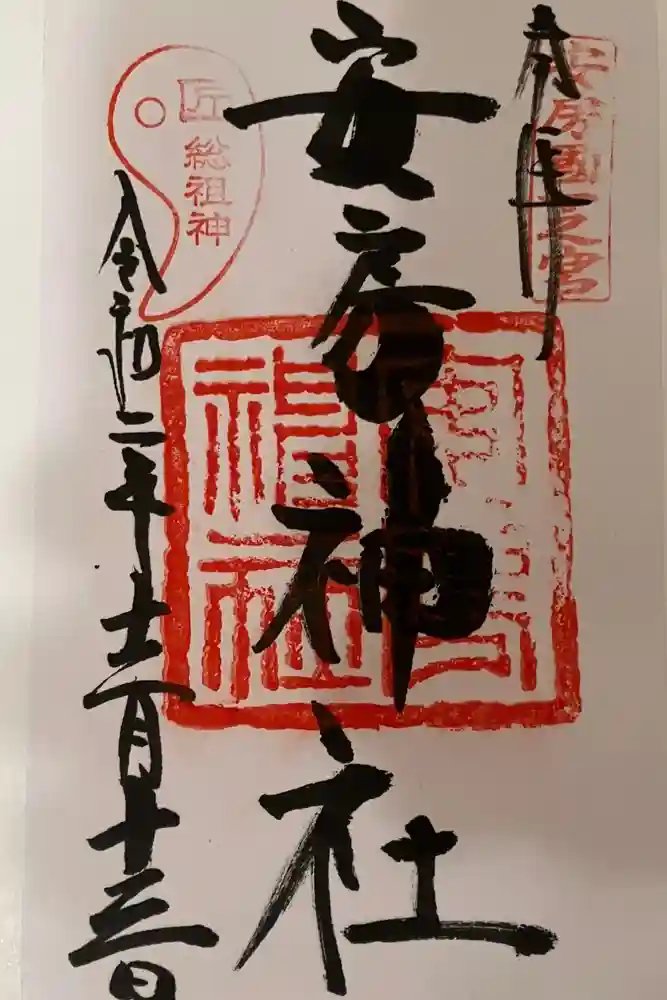 奉拝
安房國一之宮
安房神社
匠 総祖神
令和二年十二月十三日